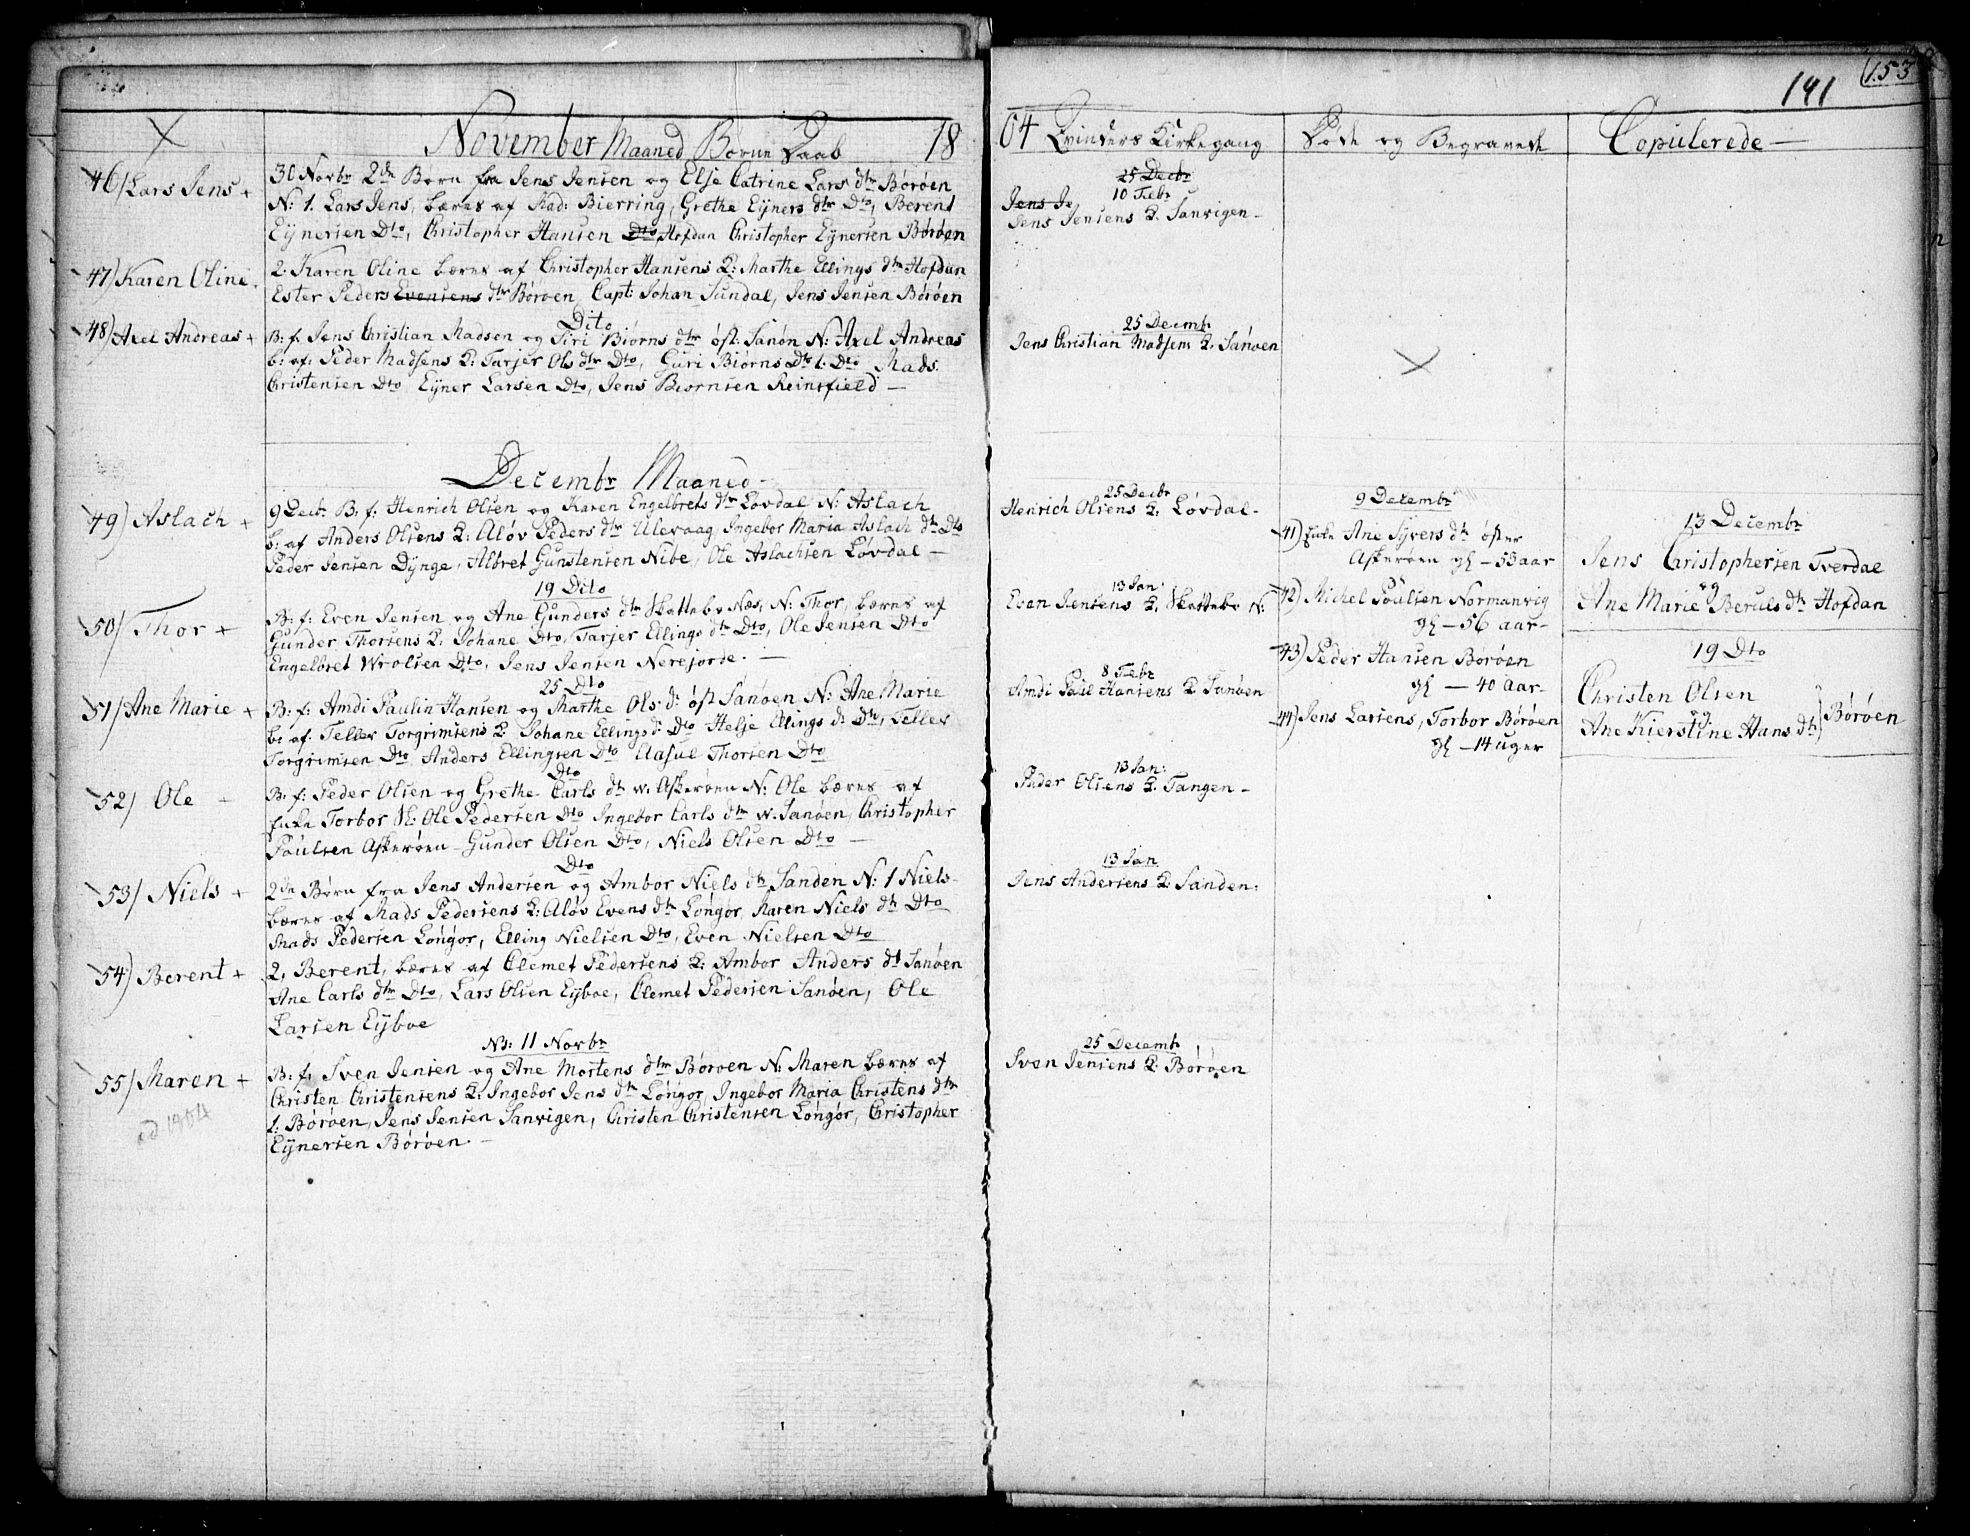 November Maaned Børne Daab 18
46) Lars Jens +
30 Novbr 2de Børn fra Jens Jensen og Elje Catrine Lars dtr Børøen
N: 1. Lars Jens, bæres af Mad: Bierring, Grethe Eyners dtr Dto, Berent
Eynersen Dto, Christopher Hansen Dto Hofdan Christopher Eynersen Børøen
47) Karen Oline.
2. Karen Oline bæres af Christopher Hansens Q: Marthe Ellings dtr Hofdan
Ester Peders Evensens dtr Børøen, Capt: Johan Sundal, Jens Jensen Børøen
Dito
48) Axel Andreas +
B: f. Jens Christian Madsen og Siri Biørns dtr øst. Sanøn N: Axel Andreas
b: af: Peder Madsens Q: Tarjer Ols dtr Dto, Guri Biørns dtr Dto Mads
Christensen Dto, Eyner Larsen Dto, Jens Biørnsen Reinsfield —
Decembr Maaned
49) Aslach +
9 Decbr B. f: Henrich Olsen og Karen Engelbrets dtr Løvdal N: Aslach
b: af Anders Olsens Q: Aløv Peders dtr Ulevaag, Ingebor Maria Aslach dtr Dto
Peder Jensen Dynge, Albret Gunstensen Nibe, Ole Aslachsen Løvdal —
19 Dito
50) Thor +
B: f: Even Jensen og Ane Gunders dtr Skottebo Næs, N: Thor, bæres af
Gunder Thorsens Q: Johane Dto, Tarjer Ellings dtr Dto, Ole Jensen Dto
Engelbret Wrolsen Dto, Jens Jensen Nerejorde. —
25 Dto
51) Ane Marie +
B: f: Amdi Paulin Hansen og Marthe Ols: d: øst Sanøen N: Ane Marie
b: af: Tellev Torgrimsens Q: Johane Ellings d: Dto Helje Ellings d: Dto, Tellev
Torgrimsen Dto Anders Ellingsen Dto Aasul Thorsen Dto
Dto
52) Ole -
B: f: Peder Olsen og Grethe Carls dtr w: Askerøen N: Ole bæres af
Enke Torbor Sl: Ole Pedersen Dto Ingebor Carls dtr w. Sanøen, Christopher
Poulsen Askerøen - Gunder Olsen Dto, Niels Olsen Dto —
Dto
53) Niels +
2de Børn fra Jens Andersen og Ambor Niels dtr Sanden N: 1 Niels-
bæres af Mads Pedersens Q: Aløv Evens dtr Longør, Karen Niels dtr Dto
Mads Pedersen Longør, Elling Nielsen Dto, Even Nielsen Dto
54) Berent +
2, Berent, bæres af Clemet Pedersens Q: Ambor Anders dtr Sanøen
Ane Carls dtr Dto, Lars Olsen Eyboe, Clemet Pedersen Sanøen, Ole
Larsen Eyboe
NB: 11 Novbr
55) Maren +
B: f: Sven Jensen og Ane Mortens dtr Børøen N: Maren bæres af
Christen Christensens Q: Ingebor Jens dtr Longør, Ingebor Maria Christens dtr
1: Børøen, Jens Jensen Sanvigen, Christen Christensen Longør, Christopher
Eynersen Børøen. —
141
153
04 Qvinders Kirkegang
25 Decbr
10 Febr
Jens Je
Jens Jensens Q. Sanvigen -
25 Decembr
Jens Christian Madsens Q. Sanøen
25 Decbr
Henrich Olsens Q: Løvdal -
13 Jan:
Even Jensens Q. Skottebo N:
8 Febr
Amdi Paul Hansens Q Sanøen
13 Jan:
Peder Olsens Q. Tangen -
13 Jan
Jens Andersens Q: Sanden:
25 Decembr
Sven Jensens Q: Børøen
Døde og Begravede
9 Decembr
41) Enke Ane Syvers dtr øster
Askerøen gl - 53 aar
42) Michel Poulsen Normanvig
gl - 56 aar -
43) Peder Hansen Børøen
gl — 40 aar -
44) Jens Larsens, Torbor Børøen
gl - 14 uger
Copulerede —
13 Decembr
Jens Christophersen Tverdal
og
Ane Marie Beruls dtr Hofdan
19 Dto
Christen Olsen
og
Ane Kierstine Hans dtr } Børøen